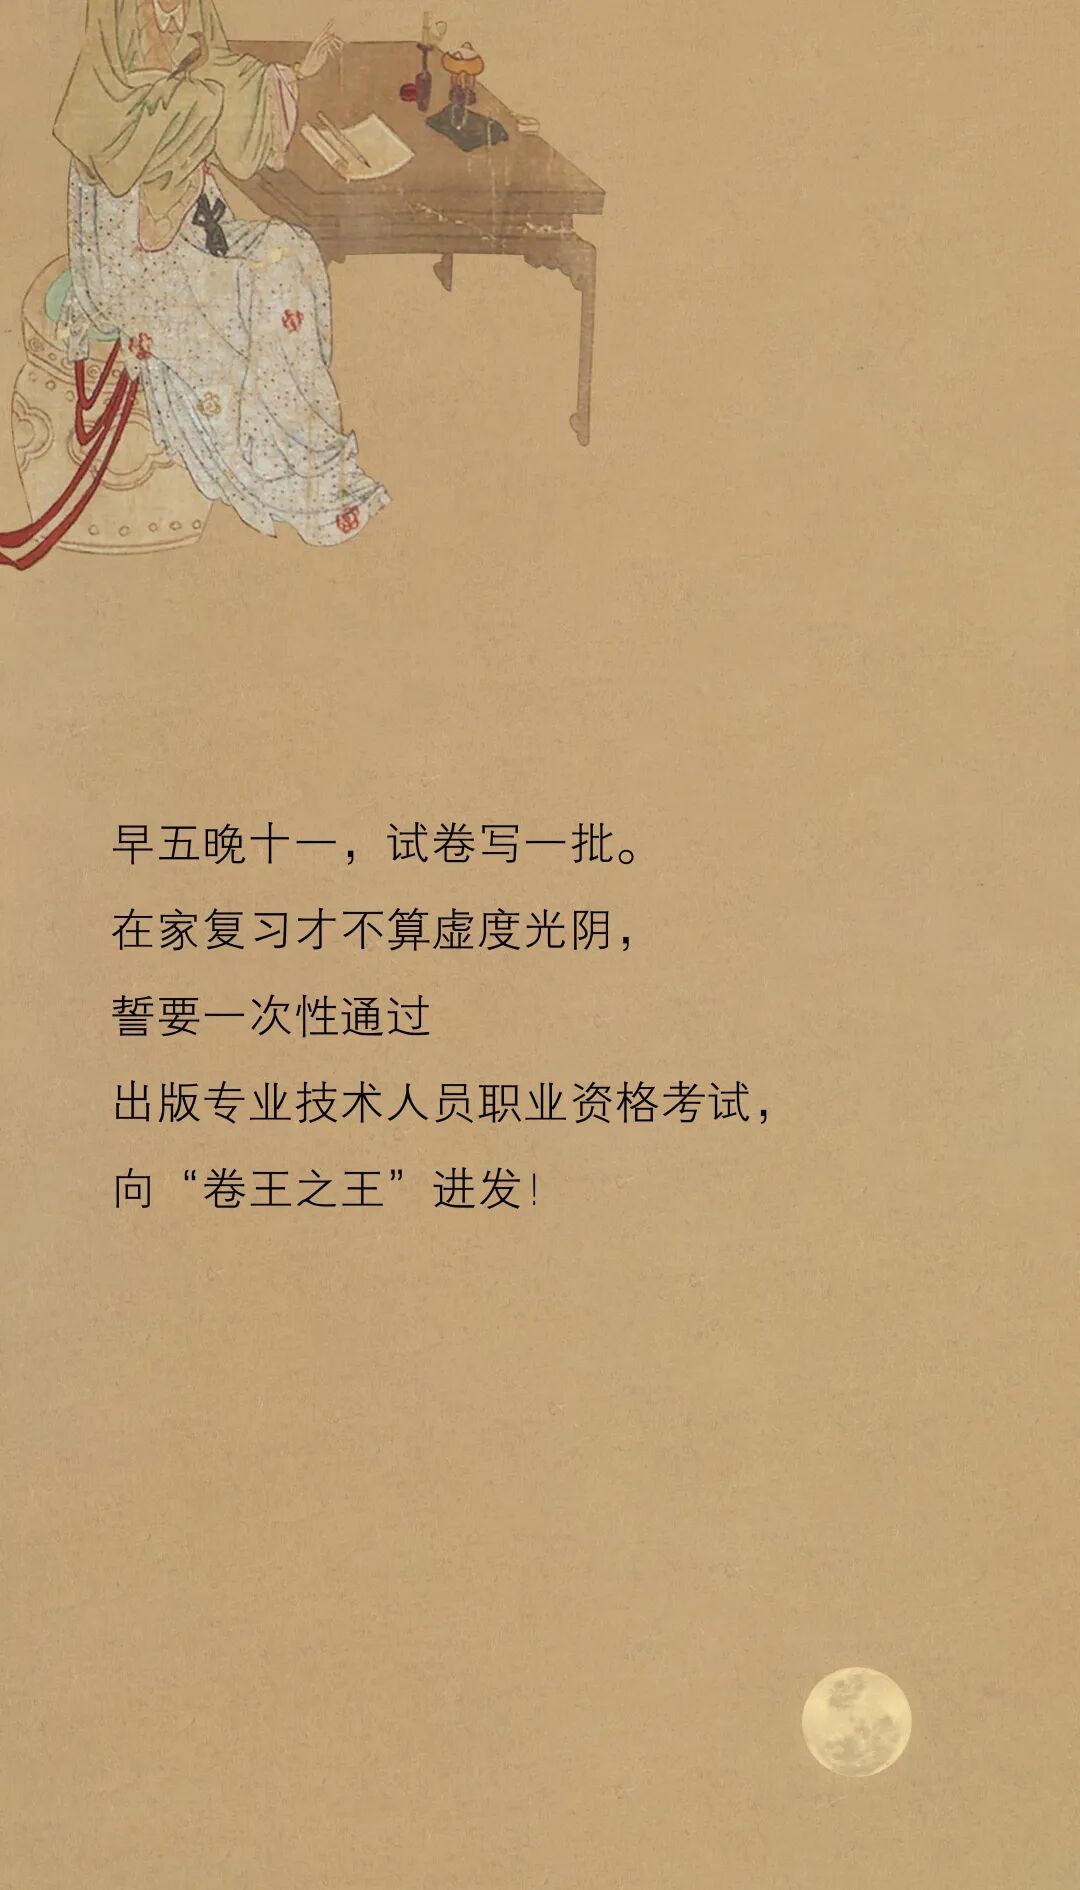 早五晚十一，试卷写一批。
在家复习才不算虚度光阴，
誓要一次性通过
出版专业技术人员职业资格考试，
向“卷王之王”进发！